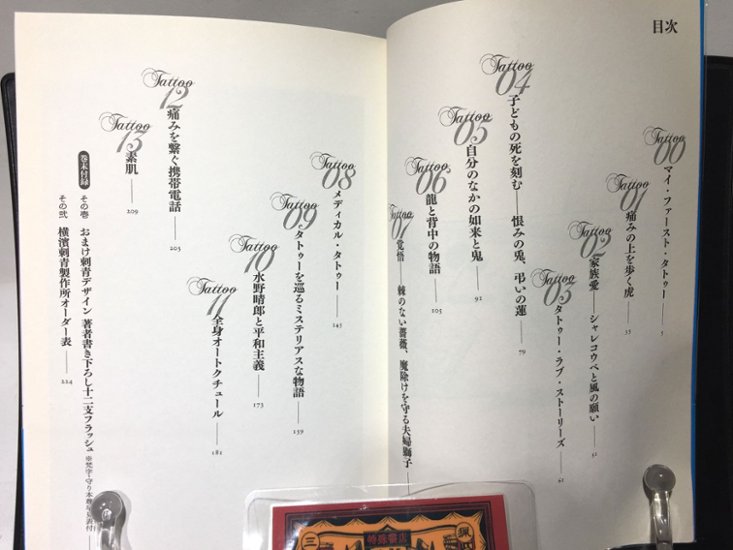 目次
Tattoo 00 マイ・ファースト・タトゥー 5
Tattoo 01 痛みの上を歩く虎 35
Tattoo 02 家族愛――シャレコウベと風の願い 51
Tattoo 03 タトゥー・ラブ・ストーリーズ 61
Tattoo 04 子どもの死を刻む――恨みの兎、弔いの蓮 79
Tattoo 05 自分のなかの如来と鬼 91
Tattoo 06 龍と背中の物語 105
Tattoo 07 覚悟――棘のない薔薇、魔除けを守る夫婦獅子
Tattoo 08 メディカル・タトゥー 145
Tattoo 09 タトゥーを巡るミステリアスな物語 159
Tattoo 10 水野晴郎と平和主義 173
Tattoo 11 全身オートクチュール 181
Tattoo 12 痛みを繋ぐ携帯電話 203
Tattoo 13 素肌 209
巻末付録
その壱 おまけ刺青デザイン 著者書き下ろし十二支フラッシュ ※梵字・守り本尊早見表付
その弐 横濱刺青製作所オーダー表 224
特殊書店